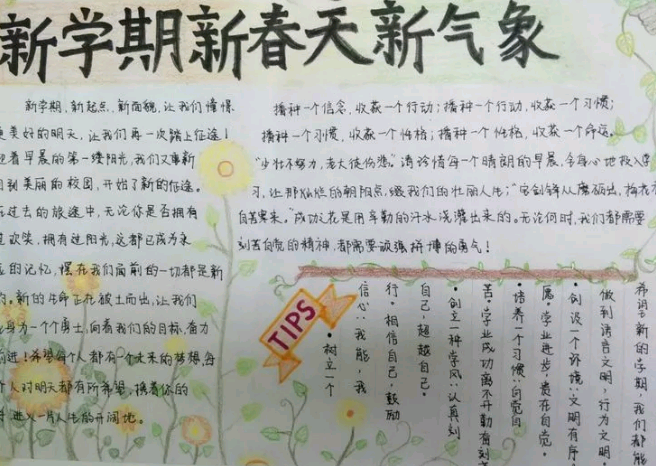 新学期新春天新气象
新学期,新起点,新面貌,让我们憧憬
更美好的明天,让我们再一次踏上征途!
迎着早晨的第一缕阳光,我们又重新
回到美丽的校园,开始了新的征途。
在过去的旅途中,无论你是否拥有
过欢笑,拥有过阳光,这都已成为永
的记忆,摆在我们面前的一切都是新
的。新的生命正在破土而出,让我们
身为一个个勇士,向着我们的目标奋力
前进!希望每个人都有一个未来的梦想,每
个人对明天都有所希望,携着你的
进入一片人生的开阔地。
播种一个信念,收获一个行动;播种一个行动,收获一个习惯;
播种一个习惯,收获一个性格;播种一个性格,收获一个命运。
"少壮不努力,老大徒伤悲。"请珍惜每一个晴朗的早晨,全身心地投入学
习,让那灿烂的朝阳点缀我们的壮丽人生;"宝剑锋从磨砺出,梅花
自苦寒来。"成功之花是用辛勤的汗水浇灌出来的。无论何时,我们都需要
刻苦自觉的精神,都需要顽强拼搏的勇气!
TIPS
·树立一个
信心:我能,我
行。相信自己,鼓励
自己,超越自己。
·创立一种学风:认真刻
苦。学业成功离不开勤奋刻
·培养一个习惯:自觉自
愿。学业进步,贵在自觉。
·创设一个环境:文明有序
做到语言文明,行为文明
新的学期,我们都能